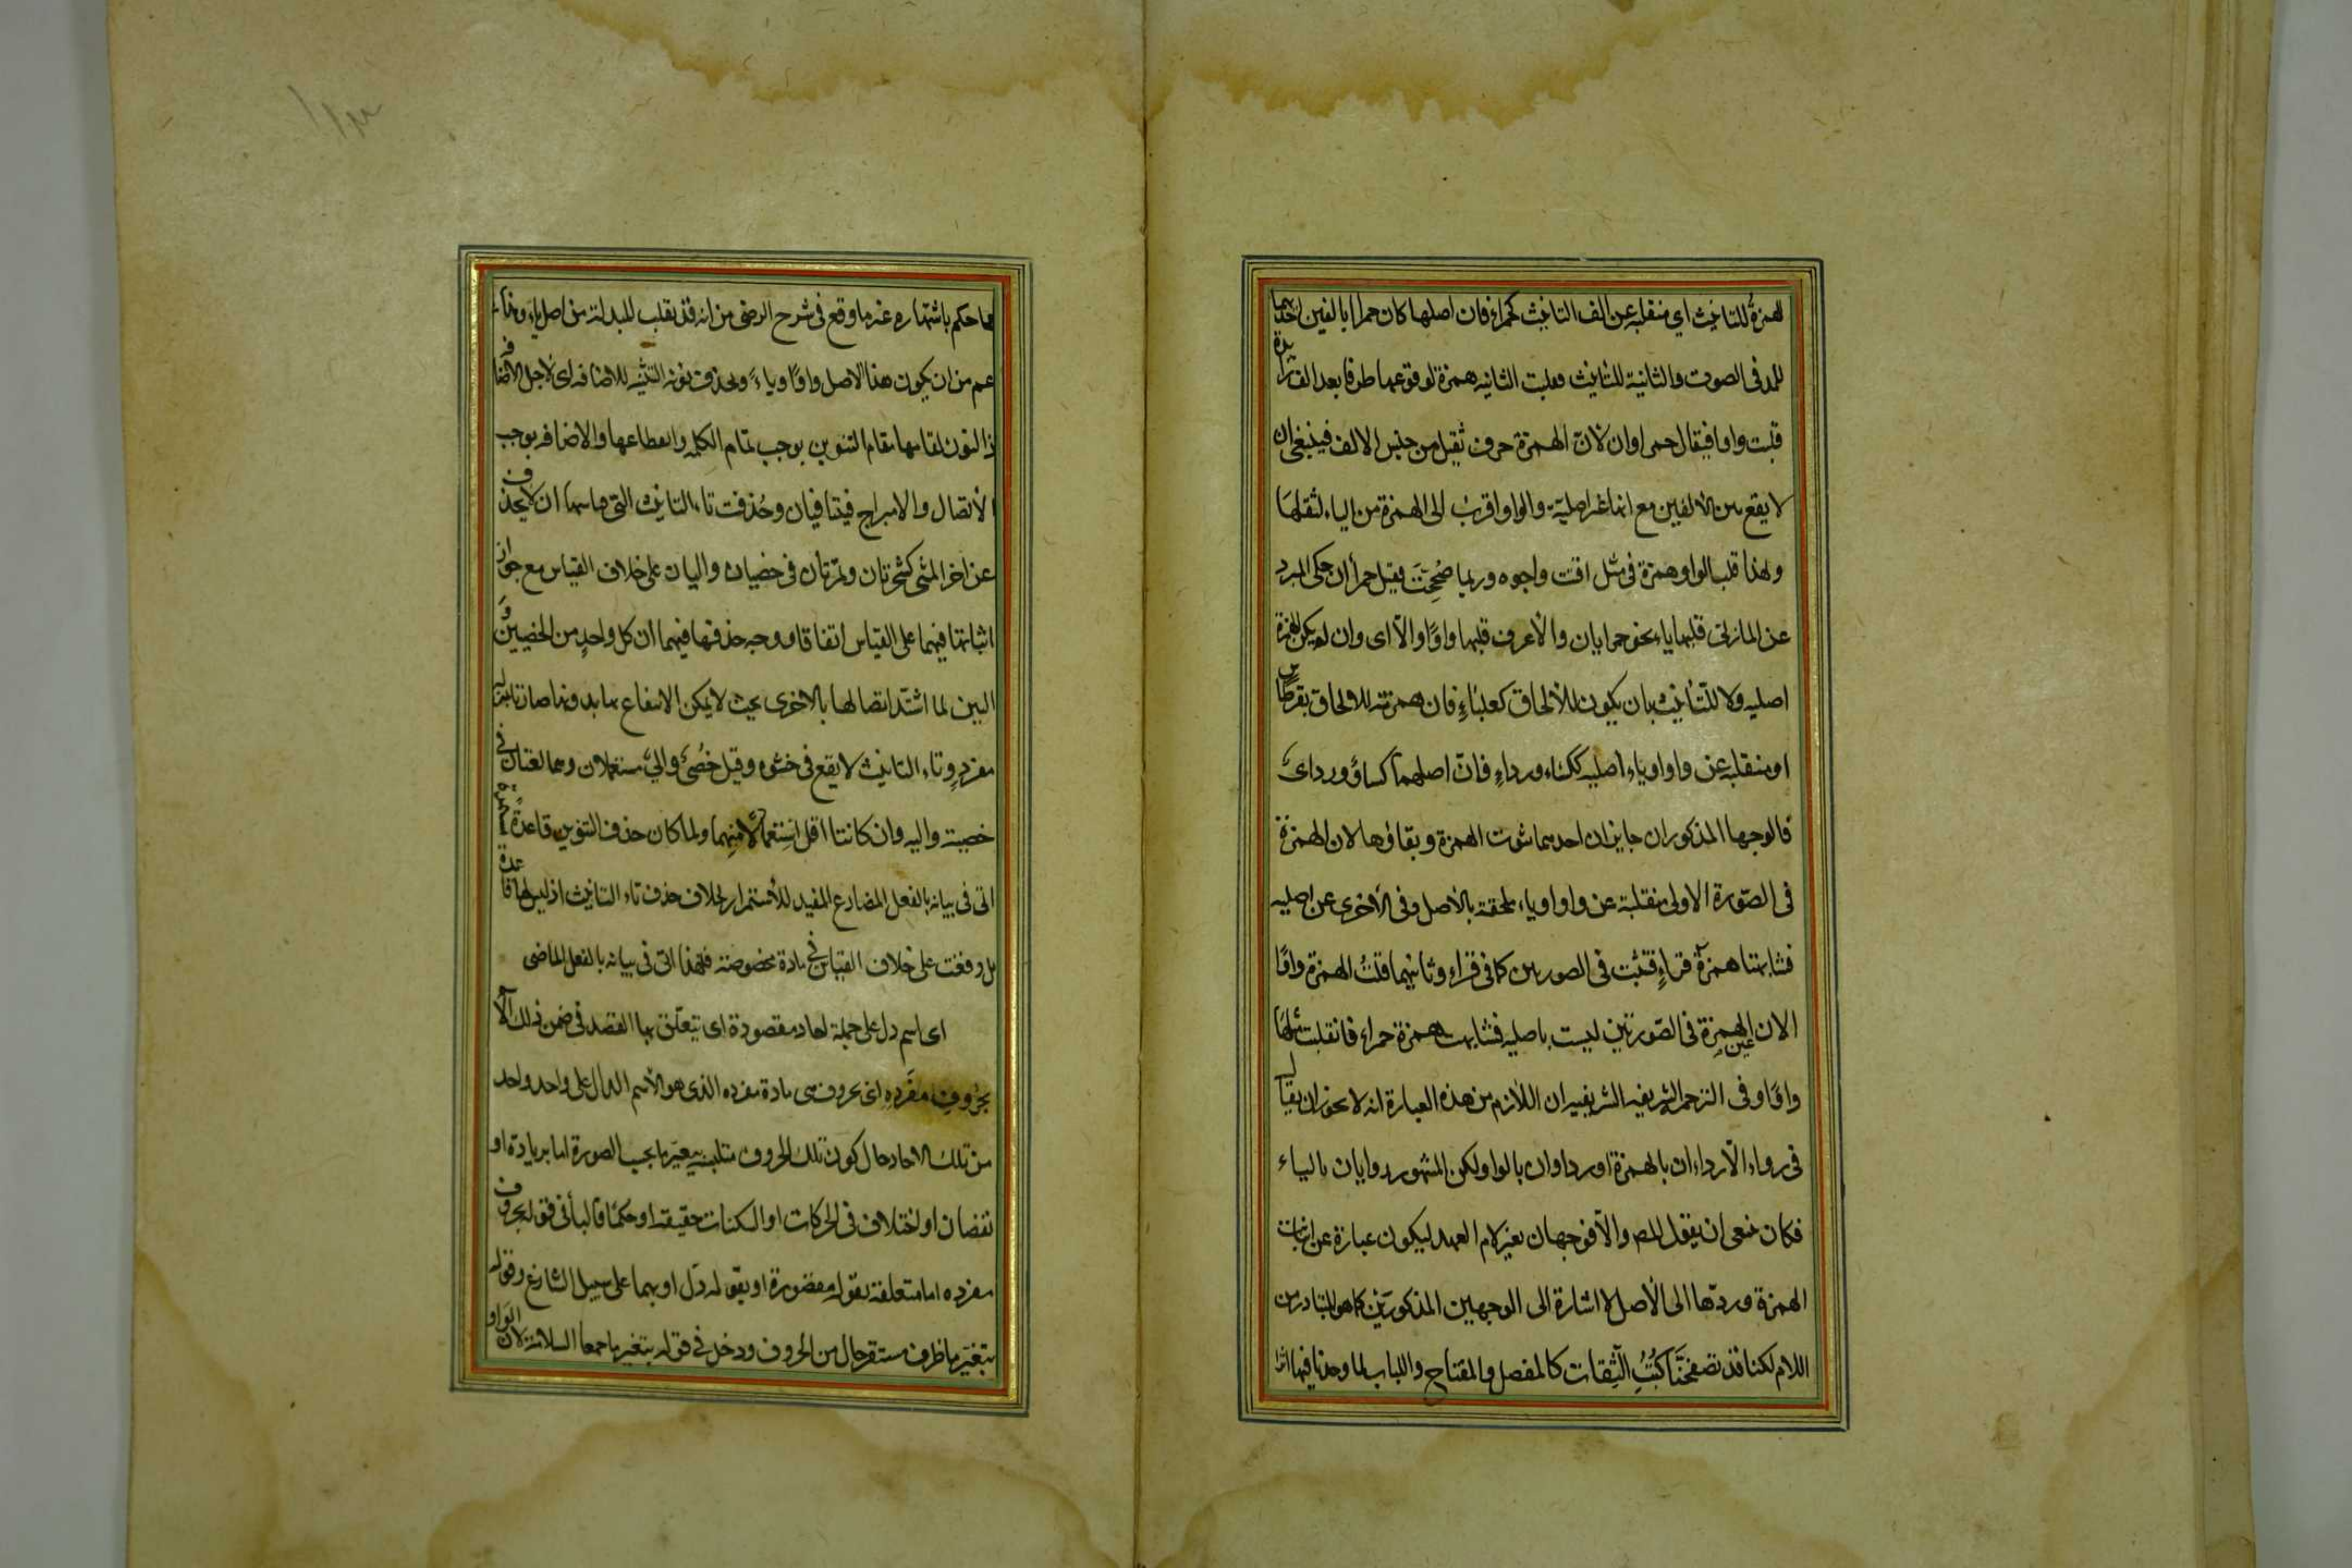 لهمزة للتانيث اي منقلبة عن الف التانيث كحمراء فان اصلها كان حمرا بالفين احدهما
للمد فى الصوت والثانية للتانيث فقلبت الثانيه همزة لوقوعها طرفا بعد الف زائدة
قلبت واوا فيقال حمراوان لانّ الهمزة حرف ثقيل من جنس الالف فينبغى ان
لا يقع بين الالفين مع انها غير اصلية والواو اقرب الى الهمزة من الياء لثقلها
ولهذا قلب الواو همزة فى مثل اقت واجوه وربما صُحِحَت فقيل حمرأان حكى المبرد
عن المازنى قلبها ياء نحو حمرايان والأعرف قلبها واوًا والا اى وان لم يكن الهمزة
اصليه ولا للتّأنيث بان يكون للألحاق كعلباءٍ فان همزته للالحاق بقرطاس
او منقلبه عن واو او ياء اصليه ككساء ورداءٍ فانّ اصلهما كساو ورداى
فالوجها المذكوران جايزان احدهما ثبوت الهمزة وبقاؤها لان الهمزة
فى الصّورة الاولى منقلبة عن واو او ياء ملحقة بالأصل وفى الأخرى عن اصليه
فشابهتا همزة قراءٍ فثبت فى الصورتين كما فى قراء وثانيهما قلبُ الهمزة واوًا
الان عين الهمزة فى الصّورتين ليست باصليه فشابهت همزة حمراء فانقلبت مثلها
واوًا وفى الترجمه الشريفيه الشريفيه ان اللازم من هذه العبارة انه لا يجوز ان يقال
فى رداء الّا رداءان بالهمزة او رداوان بالواو لكن المشهور ردايان بالياء
فكان ينبغى ان يقول المص والّا فوجهان بغير لام العهد ليكون عبارة عن اثبات
الهمزة وردّها الى الأصل لا اشارة الى الوجهين المذكورَين كما هو المتبادر من
اللام لكنا قد تصفحنَا كُتُبِ الثِّقات كالمفصل والمفتاح واللباب لما وجدنا فيها اثرا
مما حكم باشتهاره غير ما وقع فى شرح الرضى من انه قد تقلب المبدلة من اصل ياء وهذا
عم من ان يكون هذا الاصل واوًا او ياءً ويحذف نونه التثنيه للاضافه اى لاجل الاضافة
ذ النون لقيامها مقام التنوين يوجب تمام الكلمه وانقطاعها والاضافه يوجب
الأتصال والامتزاج فيتنافيان وحُذفت تاء التانيث التى قياسها ان لا يحذف
عن اخر المثنى كشجرتان وتمرتان فى خصيان واليان على خلاف القياس مع جواز
اثباتها فيهما على القياس اتفاقا ووجه حذفها فيهما ان كل واحد من الخصيين وَ
اليين لما اشتدّ اتصالها بالاخرى بحيث لا يمكن الانتفاع بها بدونها صارتا بمنزلة
مفردٍ وتاء التانيث لا يقع فى حشوه وقيل خُصىٌ والىٌ مستعملان وهما لغتان فى
خصية واليه وان كانتا اقل استعمالا منهما ولما كان حذف التنوين قاعدة مستمرة
اتى فى بيانه بالفعل المضارع المفيد للأستمرار بخلاف حذف تاء التانيث اذ ليس لها قاعدة
بل وقعت على خلاف القياس فى مادة مخصوصة فلهذا اتى فى بيانه بالفعل الماضى
اى اسم دل على جملة احاد مقصودة اى يتعلّق بها القصد فى ضمن ذلك الأ
بحُروف مفرده اى بحروف هى مادة مفرده الذى هو الأسم الدال على واحد واحد
من تلك الاحاد حال كون تلك الحروف متلبسة بتغيّر ما بحسب الصورة اما بزيادة او
نقصان او اختلاف فى الحركات او السكنات حقيقة او حكمًا فالباء فى قوله بحروف
مفرده اما متعلقة بقوله مقصودة او بقوله دَل او بهما على سبيل التنازع وقوله
بتغيّر ما ظرف مستقر حال من الحروف ودخل فى قوله بتغير ما جمعا السلامة لان الواو